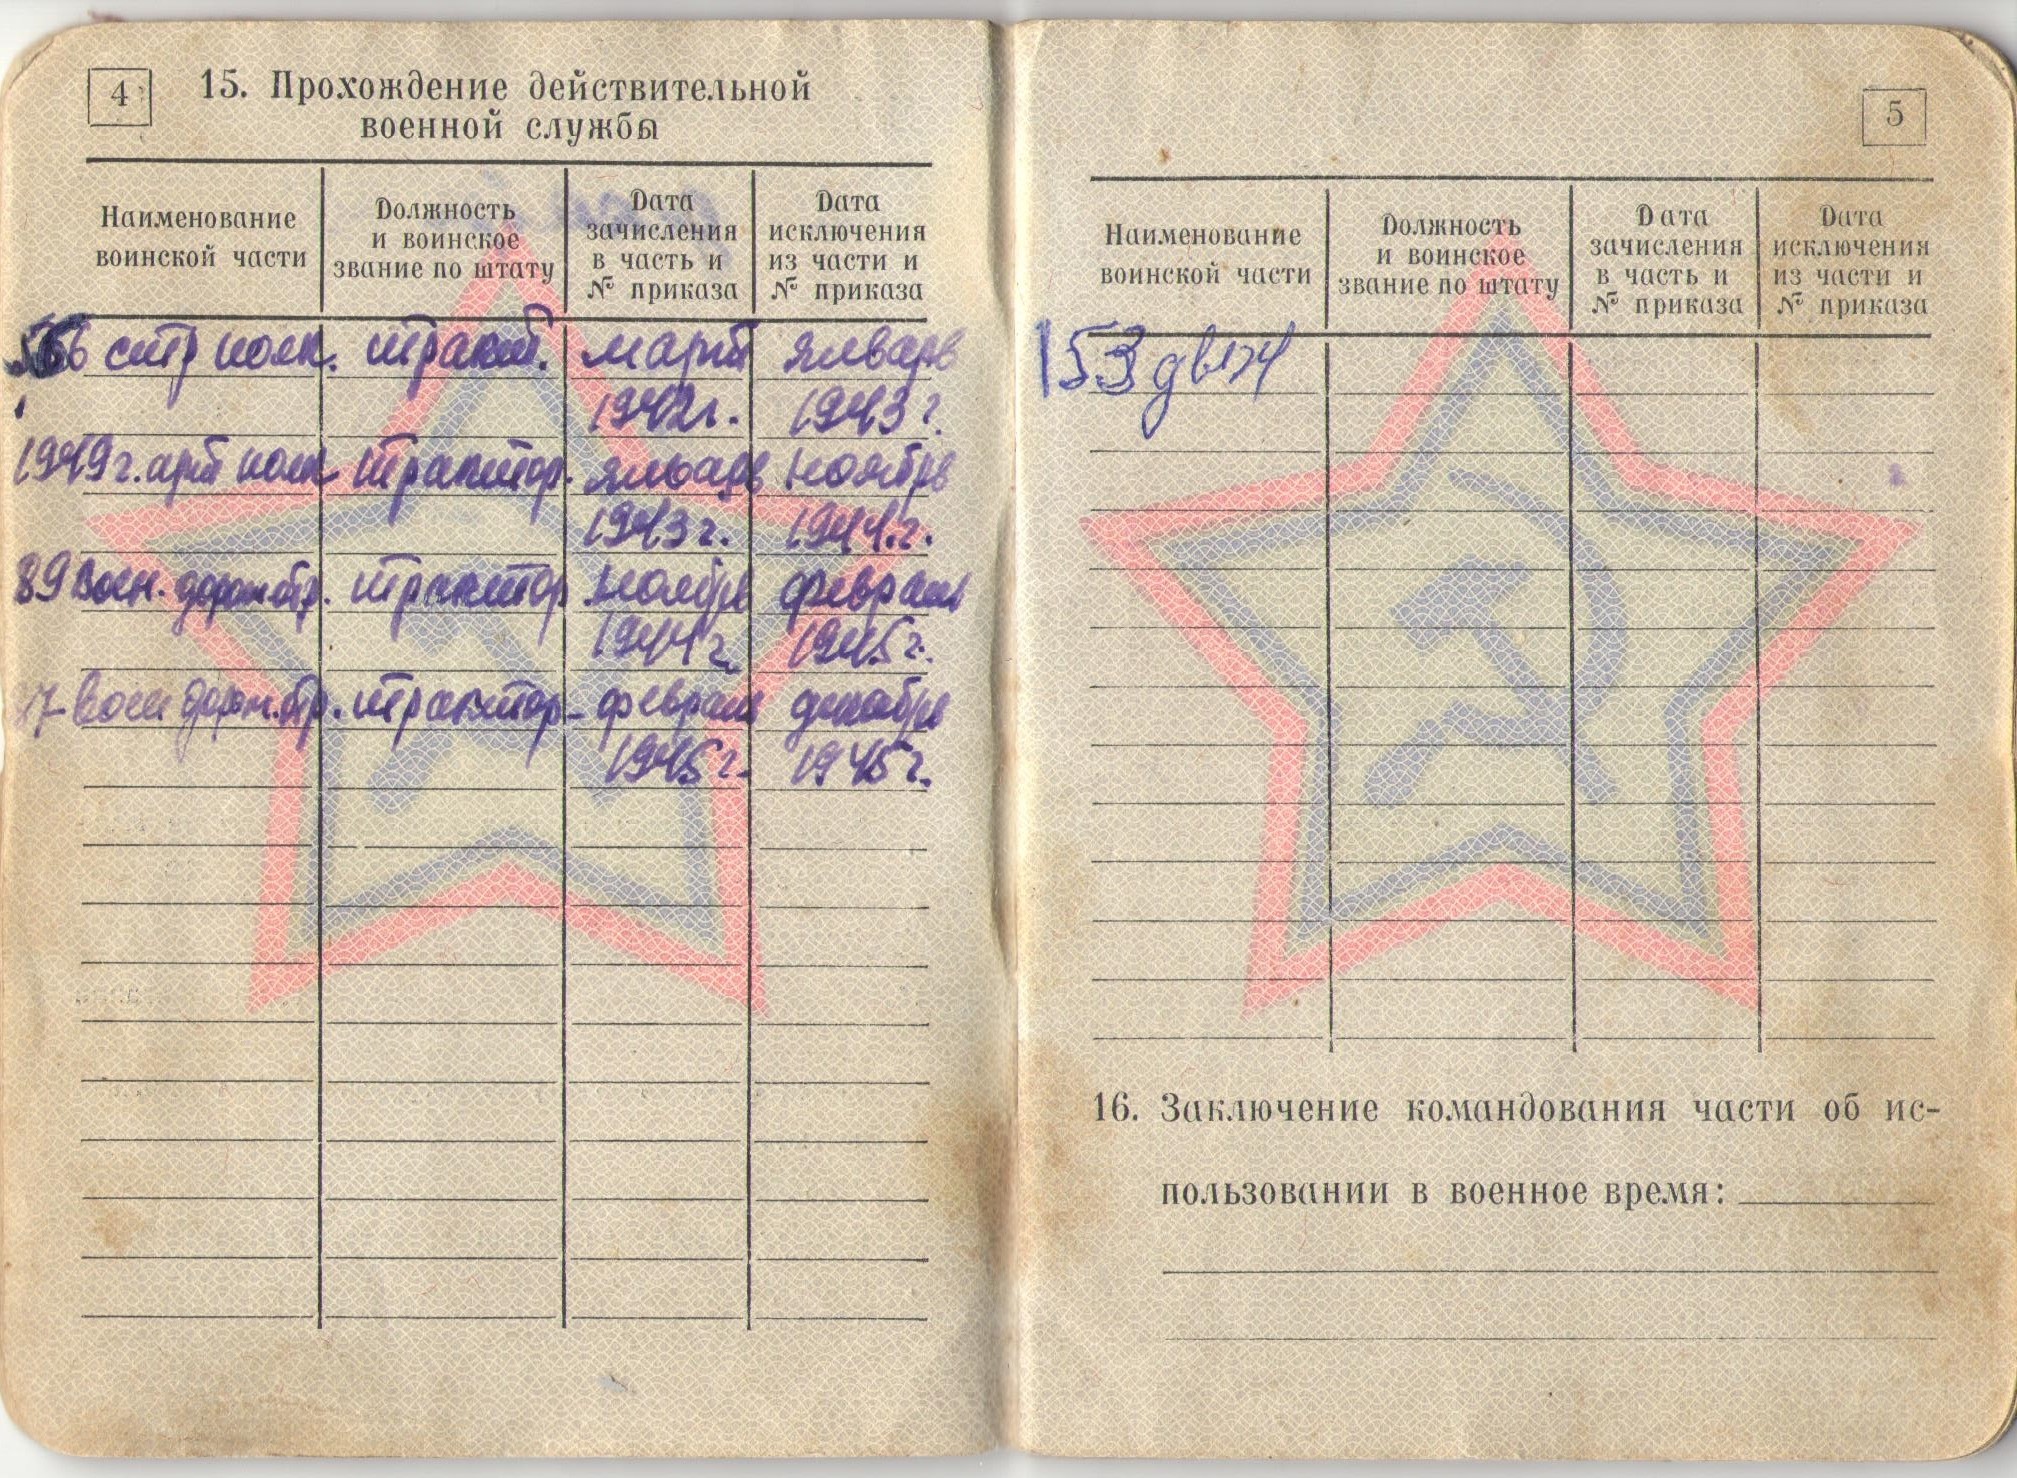 4
15. Прохождение действительной
военной службы
Наименование
воинской части
Должность
и воинское
звание по штату
Дата
зачисления
в часть и
№ приказа
Дата
исключения
из части и
№ приказа
стр полк. тракт. март январь
1942г. 1943г.
1949г. арт полк трактор. январь ноябрь
1943г. 1944.г.
89 воен. дорож.отр. трактор ноябрь февраль
1944г 1945г.
воен дорож.отр. трактор- февраль декабрь
1945г. 1945г.
5
Наименование
воинской части
Должность
и воинское
звание по штату
Дата
зачисления
в часть и
№ приказа
Дата
исключения
из части и
№ приказа
153
16. Заключение командования части об ис-
пользовании в военное время: